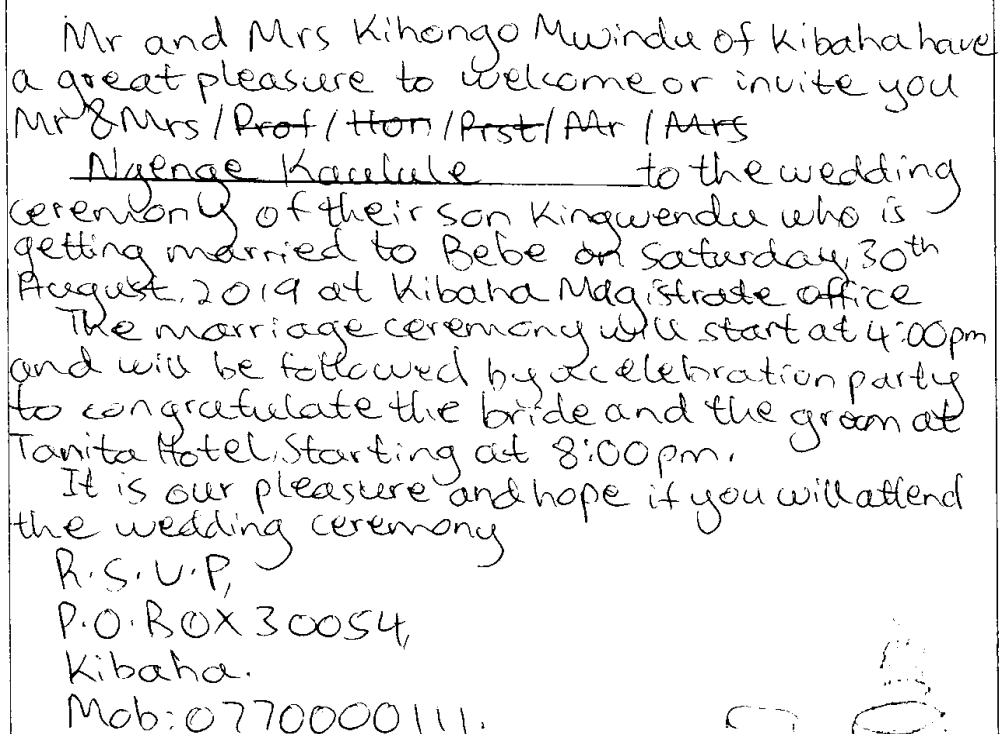 Mr and Mrs Kihongo Mwindu of Kibaha have
a great pleasure to welcome or invite you
Mr & Mrs / Prof / Hon / Prst / Mr / Mrs
Nyenge Kaulule to the wedding
ceremony of their son Kingwendu who is
getting married to Bebe on Saturday, 30th
August, 2019 at Kibaha Magistrate office
The marriage ceremony will start at 4:00pm
and will be followed by a celebration party
to congratulate the bride and the groom at
Tanita Hotel, Starting at 8:00pm.
It is our pleasure and hope if you will attend
the wedding ceremony
R.S.V.P,
P.O.BOX 30054,
Kibaha.
Mob: 0770000111.